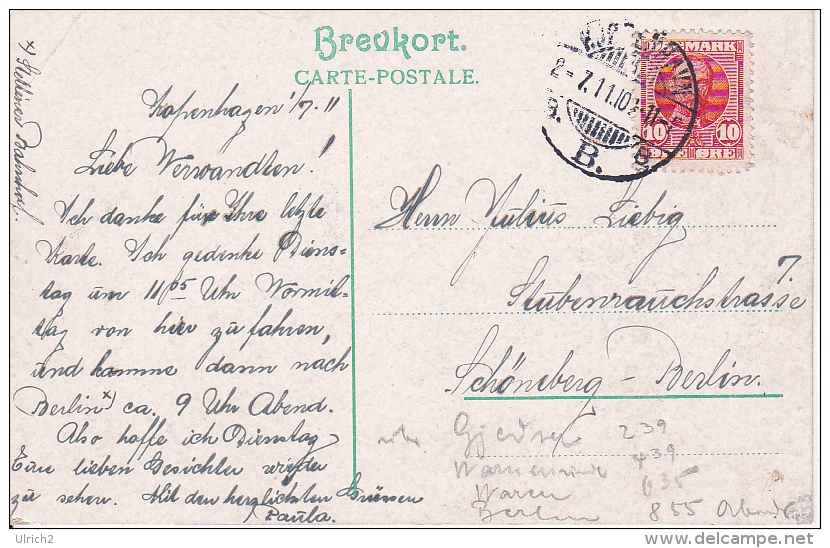 Brevkort.
CARTE-POSTALE.
x) Stettiner Bahnhof.
Kopenhagen 1/7.11
Liebe Verwandten!
Ich danke für Ihre letzte
Karte. Ich gedenke Diens-
tag um 11 05 Uhr Vormit-
tag von hier zu fahren,
und komme dann nach
Berlin x) ca. 9 Uhr Abend.
Also hoffe ich Dienstag
Eure lieben Gesichter wieder
zu sehen. Mit den herzlichsten Grüssen
Paula.
KJØBENHAVN
2-7.11.10
B.
DANMARK
10 10
ØRE
Herrn Julius Liebig
7.
Stubenrauchstrasse
Schöneberg - Berlin.
Gjedser 239
Warnemünde 439
Waren 635
Berlin 855 Abend
Ulrich2
delcampe.net